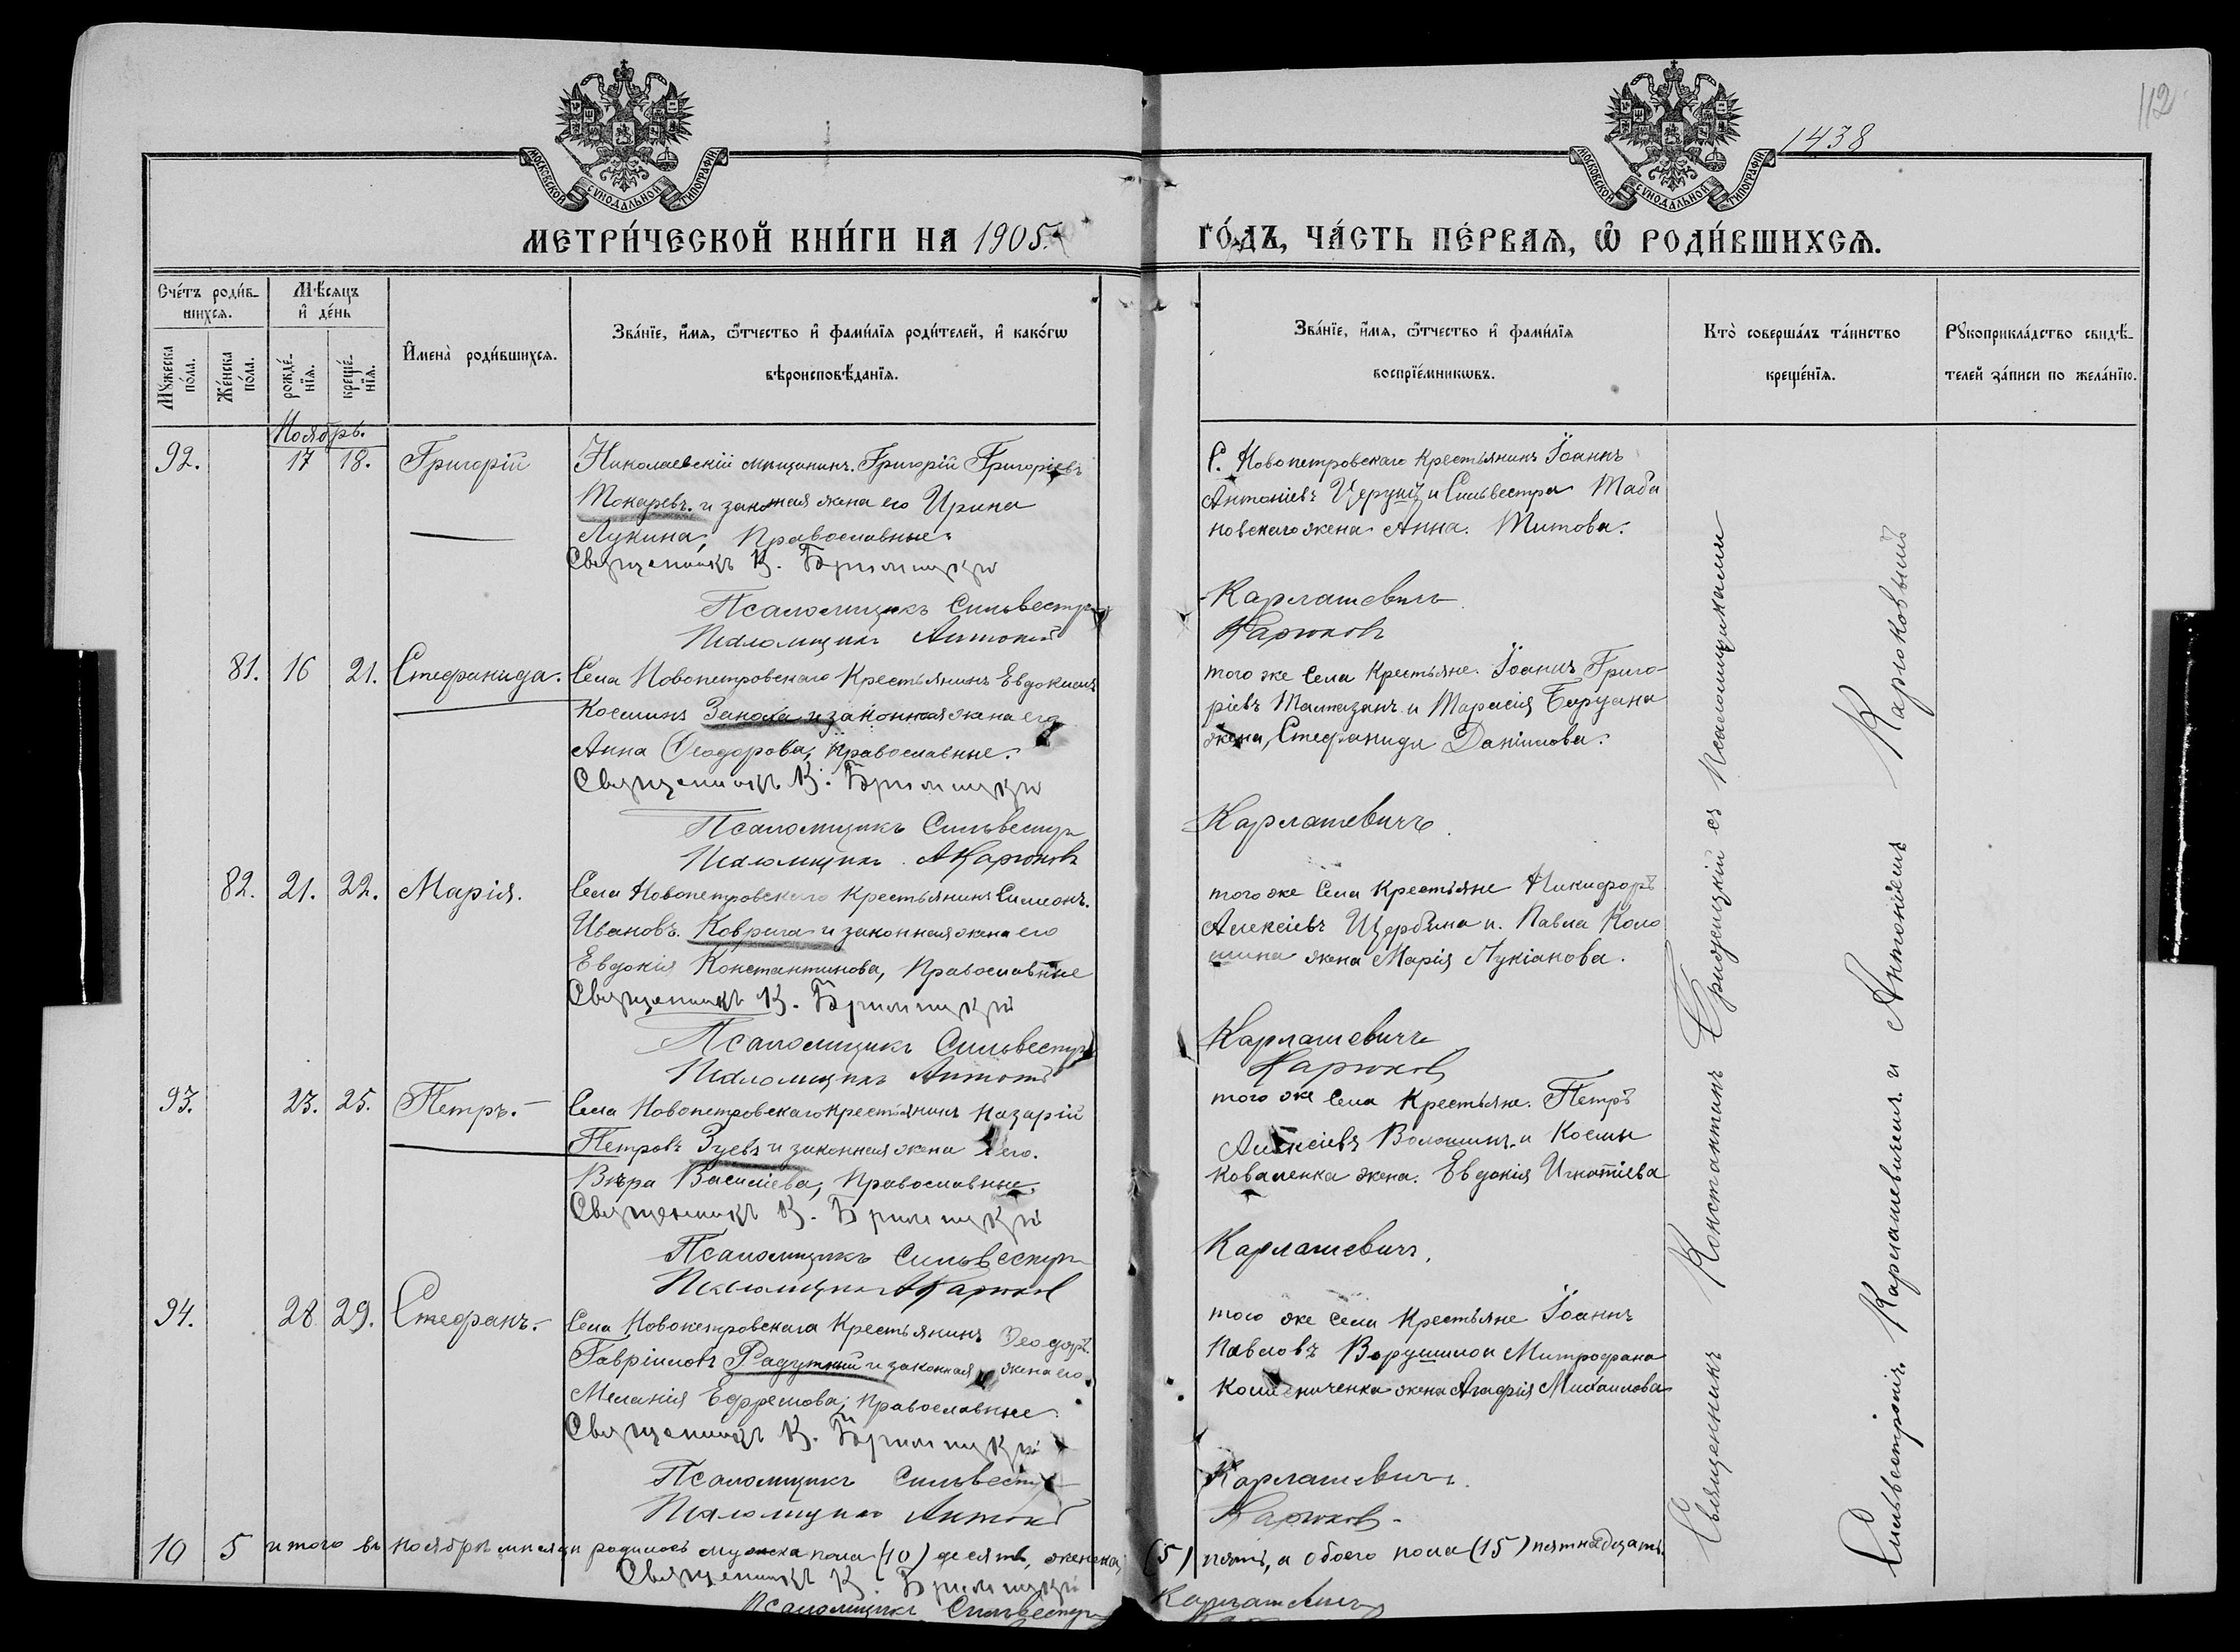 112
1438
МОСКОВСКОЙ СѴНОДАЛЬНОЙ ТИПОГРАФІИ
МОСКОВСКОЙ СѴНОДАЛЬНОЙ ТИПОГРАФІИ
МЕТРИ́ЧЕСКОЙ КНИ́ГИ НА 1905
ГО́ДЪ, ЧА́СТЬ ПЕ́РВАѦ, Ѡ҆ РОДИ́ВШИХСѦ.
Сче́тъ роди́в-
шихсѧ.
Мꙋ́жеска по́ла.
Же́нска по́ла.
Мѣ́сѧцъ
и҆ де́нь
рожде́-нїѧ.
креще́-нїѧ.
И҆мена̀ роди́вшихсѧ.
Зва́нїе, и҆́мѧ, ѻ҆́тчество и҆ фами́лїѧ роди́телей, и҆ како́гѡ
вѣроисповѣ́данїѧ.
Зва́нїе, и҆́мѧ, ѻ҆́тчество и҆ фами́лїѧ
воспрїе́мникѡвъ.
Кто̀ соверша́лъ та́инство
креще́нїѧ.
Рꙋкоприкла́дство свидѣ́-
телей за́писи по жела́нїю.
Ноябрь.
92. 17 18. Григорій
Николаевскій мѣщанинъ Григорій Григоріевъ
Токаревъ и законная жена его Ирина
Лукина, Православные.
Священникъ К.
Псаломщикъ Сильвестръ
Псаломщикъ Антоній
С. Новопетровскаго крестьянинъ Іоаннъ
Антоніевъ и Сильвестра Таба
новскаго жена Анна Титова.
Карлашевичъ
Карюковъ
81. 16 21. Стефанида.
Села Новопетровскаго Крестьянинъ Евдокимъ
Косминъ и законная жена его
Анна Ѳеодорова, Православные.
Священникъ К.
Псаломщикъ Сильвестръ
Псаломщикъ А Карюковъ
того же Села Крестьяне Іоаннъ Григо-
ріевъ и Тарасія
жена, Стефанида Даніилова.
Карлашевичъ
82. 21. 22. Марія.
Села Новопетровскаго Крестьянинъ Симеонъ
Ивановъ Коврига и законная жена его
Евдокія Константинова, Православные
Священникъ К.
Псаломщикъ Сильвестръ
Псаломщикъ Антоній
того же Села Крестьяне Никифоръ
Алексіевъ Щербина и Павла Коло
мина жена Марія Лукіанова.
Карлашевичъ
Карюковъ
93. 23. 25. Петръ.
Села Новопетровскаго крестьянинъ Назарій
Петровъ Зуевъ и законная жена его
Вѣра Василіева, Православные.
Священникъ К.
Псаломщикъ Сильвестръ
Псаломщикъ А Карюков
того же Села Крестьяне Петръ
Алексіевъ Волошинъ и Космы
Коваленка жена Евдокія Игнатіева
Карлашевичъ
94. 28 29. Стефанъ.
Села Новопетровскаго Крестьянинъ Ѳеодоръ
Гавріиловъ Радутный и законная жена его
Меланія Ефремова, Православные
Священникъ К.
Псаломщикъ Сильвестръ
Псаломщикъ Антоній
того же Села Крестьяне Іоаннъ
Павловъ и Митрофана
жена Агафія Михаилова
Карлашевичъ
Карюковъ
Священникъ Константинъ съ Псаломщиками
Сильвестромъ Карлашевичемъ и Антоніемъ
10 5 итого въ ноябрѣ мѣсяцѣ родилось мужеска пола (10) десять, женска (5) пять, а обоего пола (15) пятнадцать.
Священникъ К.
Псаломщикъ Сильвестръ Карлашевичъ